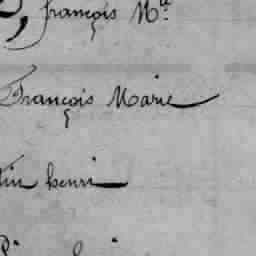 françois M.
François Marie
henri